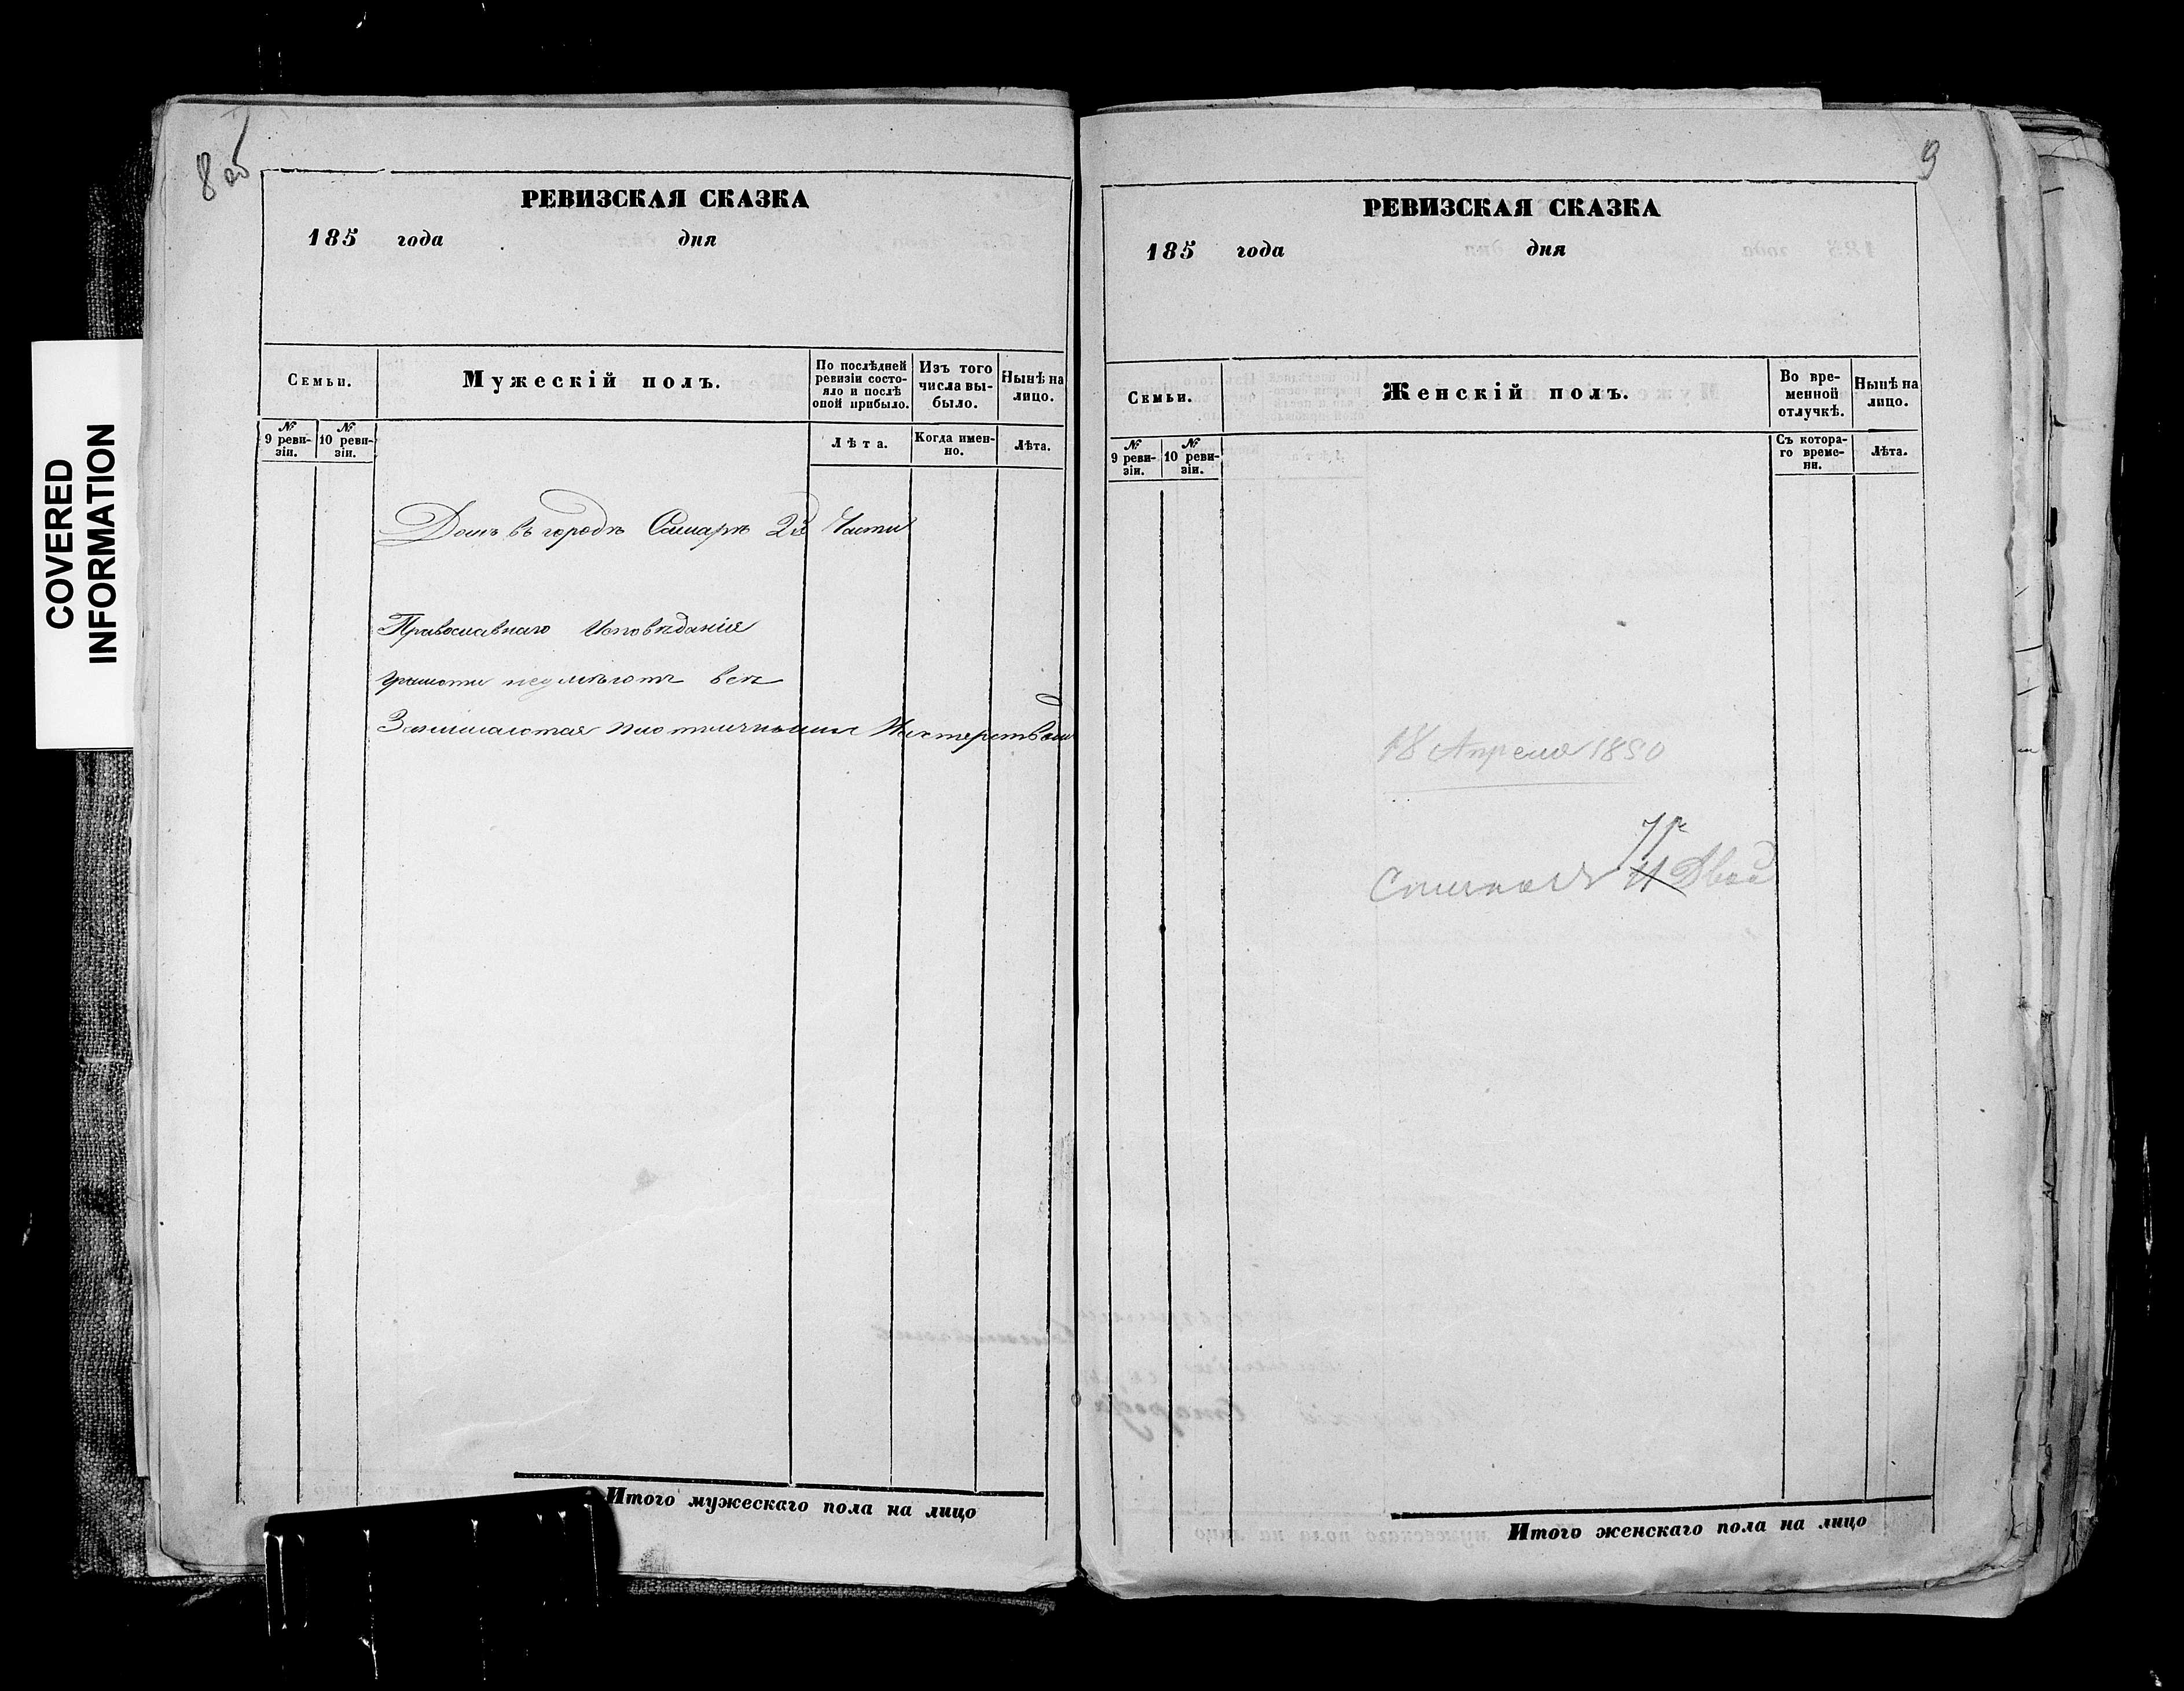 COVERED
INFORMATION
8 об
РЕВИЗСКАЯ СКАЗКА
185 года дня
Семьи.
Мужескій полъ.
По послѣдней
ревизіи состо-
яло и послѣ
оной прибыло.
Изъ того
числа вы-
было.
Нынѣ на
лицо.
№
9 реви-
зіи.
№
10 реви-
зіи.
Лѣта.
Когда имен-
но.
Лѣта.
Домъ въ городѣ Самарѣ 2й Части
Православнаго Исповѣданія
грамоти неумѣютъ всѣ
Занимаются плотничнымъ Мастерствомъ
Итого мужескаго пола на лицо
9
РЕВИЗСКАЯ СКАЗКА
185 года дня
Семьи.
Женскій полъ.
Во вре-
менной
отлучкѣ.
Нынѣ на
лицо.
№
9 реви-
зіи.
№
10 реви-
зіи.
Съ котора-
го време-
ни.
Лѣта.
18 Апреля 1850
Итого женскаго пола на лицо